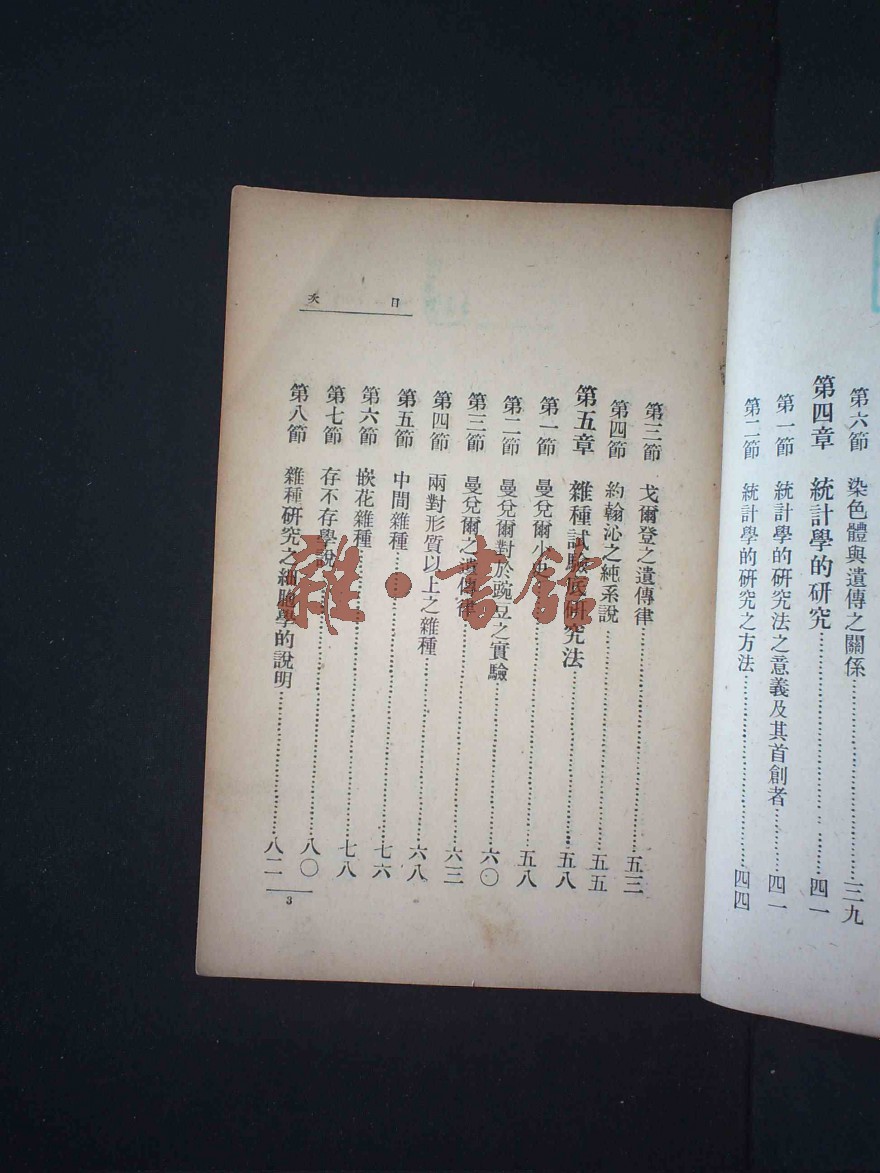 第六節　染色體與遺傳之關係……三九
第四章　統計學的研究……四一
第一節　統計學的研究法之意義及其首創者……四一
第二節　統計學的研究之方法……四四
目次
第三節　戈爾登之遺傳律……五三
第四節　約翰沁之純系說……五五
第五章　雜種試驗底研究法……五八
第一節　曼兌爾小史……五八
第二節　曼兌爾對於豌豆之實驗……六〇
第三節　曼兌爾之遺傳律……六三
第四節　兩對形質以上之雜種……六八
第五節　中間雜種……七六
第六節　嵌花雜種……七八
第七節　存不存學說……八〇
第八節　雜種研究之細胞學的說明……八二
3
雜·書館